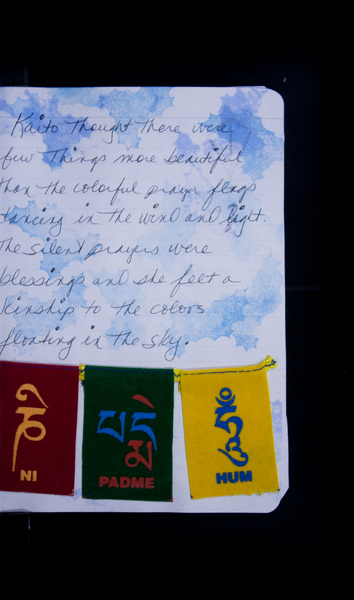 Kaito thought there were
few things more beautiful
than the colorful prayer flags
dancing in the wind and light.
The silent prayers were
blessings and she felt a
kinship to the colors
floating in the sky.
ནི པདྨེ ཧཱུྃ
NI PADME HUM